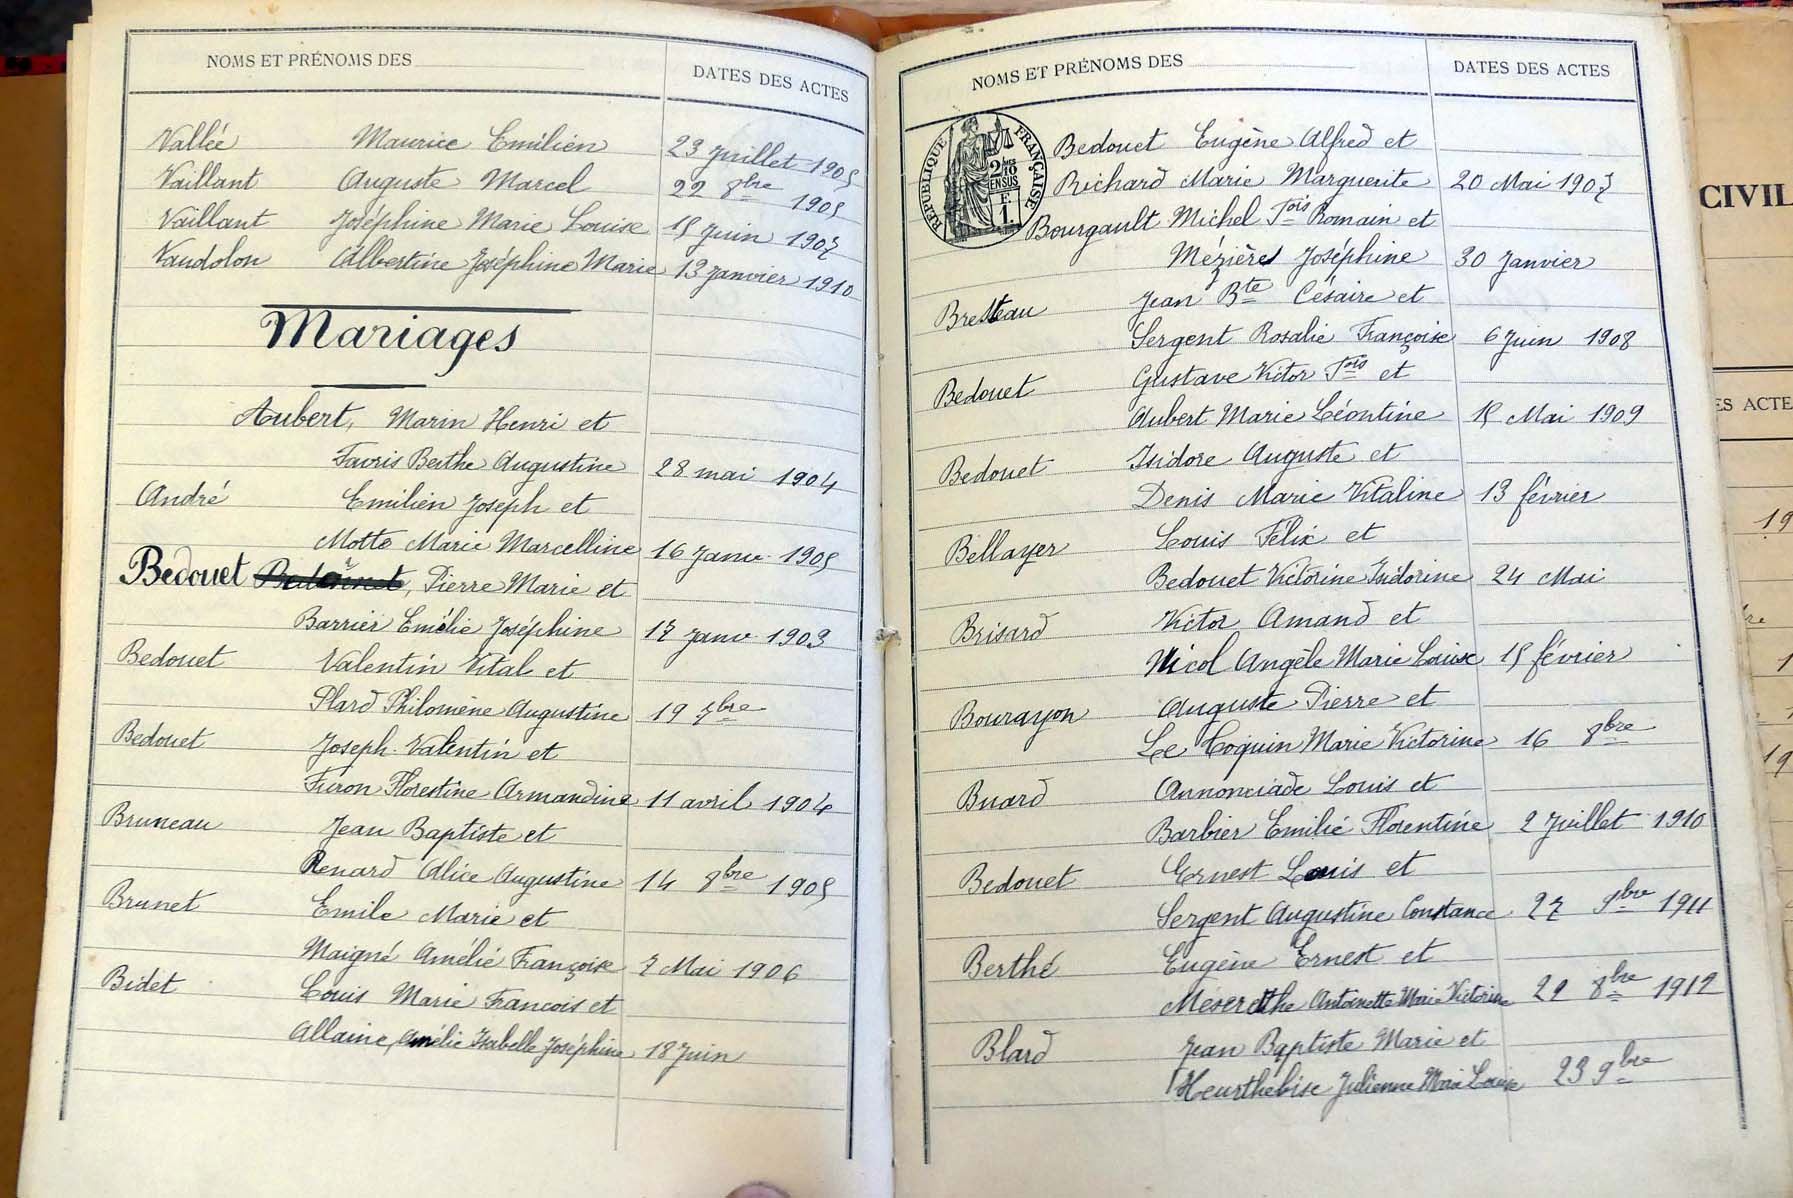 NOMS ET PRÉNOMS DES DATES DES ACTES
Vallée Maurice Emilien 23 Juillet 1905
Vaillant Auguste Marcel 22 8bre 1905
Vaillant Joséphine Marie Louise 15 Juin 1907
Vaudolon Albertine Joséphine Marie 13 Janvier 1910
Mariages
Aubert, Marin Henri et
Favris Berthe Augustine 28 mai 1904
André Emilien Joseph et
Motte Marie Marcelline 16 Janv. 1905
Bedouet Pierre Marie et
Barrier Emélie Joséphine 17 Janv 1903
Bedouet Valentin Vital et
Plard Philomène Augustine 19 7bre
Bedouet Joseph Valentin et
Furon Florestine Armandine 11 avril 1904
Bruneau Jean Baptiste et
Renard Alice Augustine 14 8bre 1905
Brunet Emile Marie et
Maigné Amélie Françoise 7 Mai 1906
Bidet Louis Marie Francois et
Allaine, Amélie Isabelle Joséphine 18 Juin
NOMS ET PRÉNOMS DES DATES DES ACTES
RÉPUBLIQUE FRANÇAISE
2/10 EN SUS
F. 1.
Bedouet Eugène Alfred et
Richard Marie Marguerite 20 Mai 1907
Bourgault Michel Fois Romain et
Mézières Joséphine 30 Janvier
Bretteau Jean Bte Césaire et
Sergent Rosalie Françoise 6 Juin 1908
Bedouet Gustave Victor Fois et
Aubert Marie Léontine 15 Mai 1909
Bedouet Isidore Auguste et
Denis Marie Vitaline 13 février
Bellayer Louis Félix et
Bedouet Victorine Isidorine 24 Mai
Brisard Victor Amand et
Nicol Angèle Marie Louise 15 février
Bourayon Auguste Pierre et
Le Coquin Marie Victorine 16 8bre
Buard Annonciade Louis et
Barbier Emilie Florentine 2 Juillet 1910
Bedouet Ernest Louis et
Sergent Augustine Constance 27 9bre 1911
Berthé Eugène Ernest et
Antoinette Marie Victorine 22 8bre 1912
Blard Jean Baptiste Marie et
Heurthebise Julienne Marie Louise 23 9bre
CIVIL
ES ACTE